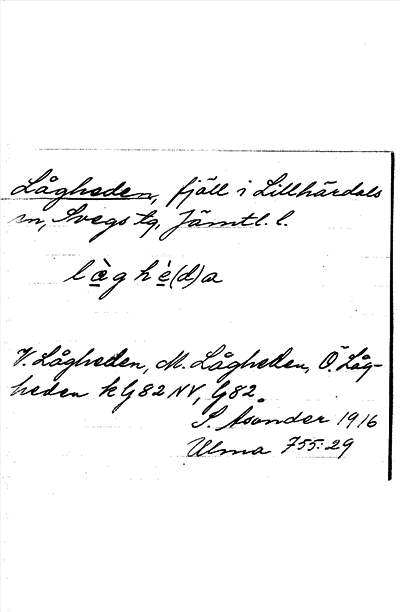 Lågheden, fjäll i Lillhärdals
sn, Svegs tg, Jämtl. l.
làg hè(d)a
V. Lågheden, M. Lågheden, Ö. Låg-
heden k G 82 NV, G 82.
S. Åsander 1916
Ulma 755:29